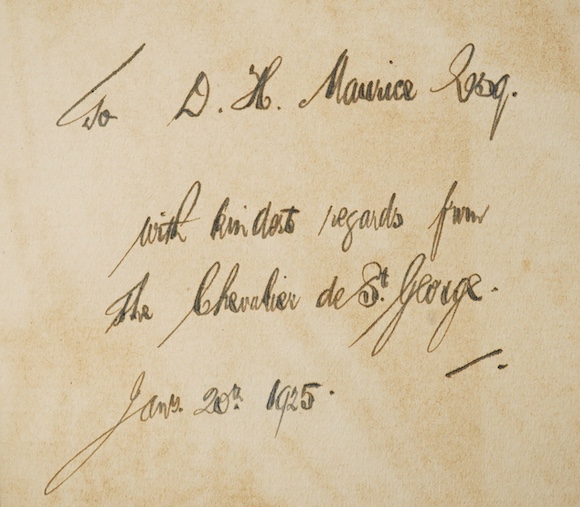 To D. H. Maurice Esq.
with kindest regards from
the Chevalier de St. George.
Jany. 20th 1925.